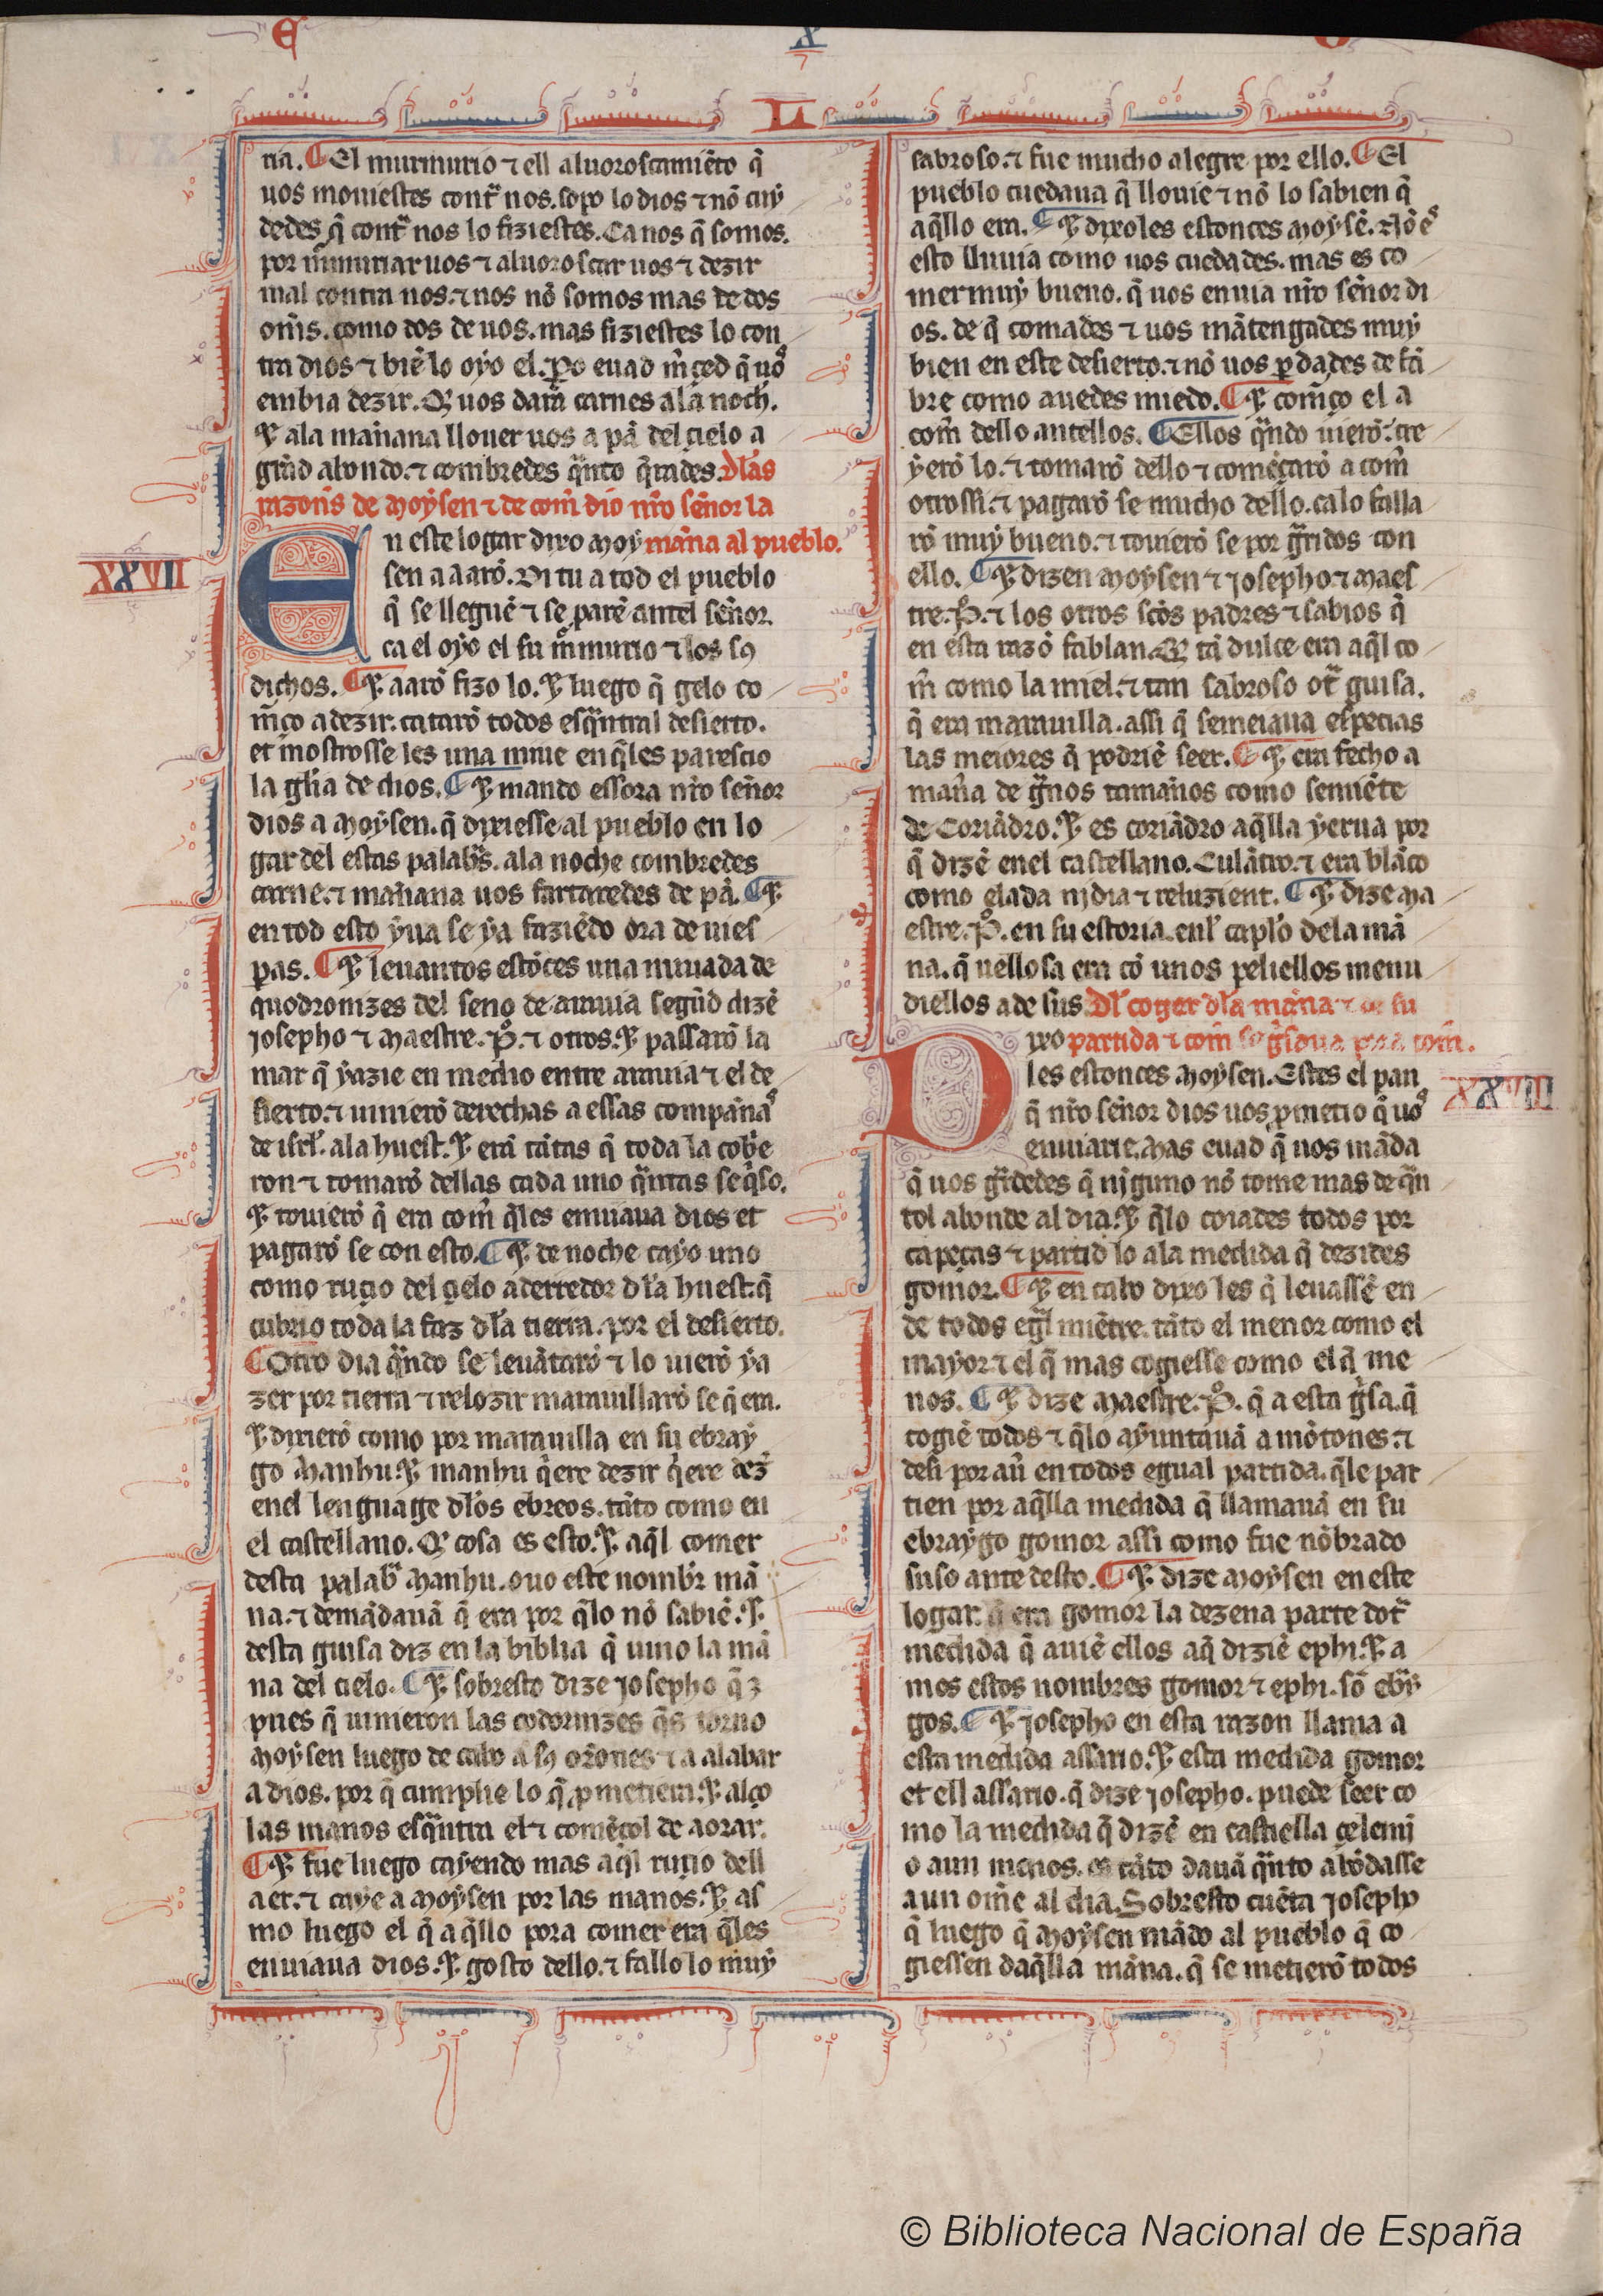 E X O
L
ria. ¶ El murmurio ⁊ ell aluoroscamiẽto q̃
uos mouiestes contr̃ nos. sopo lo dios ⁊ nõ cuy
dedes q̃ contr̃ nos lo fiziestes. Ca nos q̃ somos.
por m̃muriar uos ⁊ aluoroscar uos ⁊ dezir
mal contra nos. ⁊ nos nõ somos mas de dos
om̃s. como dos de uos. mas fiziestes lo con
tra dios ⁊ biẽ lo oyo el. P̲o euad m̃çed q̃ uos
embia dezir. Q̃ uos dara carnes ala noch.
⁊ ala mañana llouer uos a pã del çielo a
grñd abondo. ⁊ combredes q̃nto q̃rades. Dlas
razon̄s de Moysen ⁊ de com̃ dio nr̃o señor la
mãna al pueblo.
XXVII
En este logar dixo Moy
sen a aarõ. Di tu a tod el pueblo
q̃ se lleguẽ ⁊ se parẽ antel señor.
ca el oyo el su m̃murio ⁊ los sꝯ
dichos. ¶ ⁊ aarõ fizo lo. ⁊ luego q̃ gelo co
m̃ço a dezir. catarõ todos esq̃ntral desierto.
et mostrosse les una nuue en q̃les paresçio
la gl̃ia de dios. ¶ ⁊ mando essora nr̃o señor
dios a Moysen. q̃ dixiesse al pueblo en lo
gar del estas palabr̃s. ala noche combredes
carne. ⁊ mañana uos fartaredes de pã. ¶ ⁊
en tod esto yua se ya faziẽdo ora de uies
pas. ¶ ⁊ leuantos estõces una nuuada de
quodornizes del seno de arauia segũd dizẽ
Josepho ⁊ Maestre. P̊. ⁊ otros. ⁊ passarõ la
mar q̃ yazie en medio entre arauia ⁊ el de
sierto. ⁊ uinierõ derechas a essas compañas
de isrl̃. ala huest. ⁊ erã tãtas q̃ toda la cobrie
ron ⁊ tomarõ dellas cada uno q̃ntas se q̃so.
⁊ touierõ q̃ era com̃ q̃les enuiaua dios et
pagarõ se con esto. ¶ ⁊ de noche cayo uno
como ruçio del çielo aderredor dl̃a huest. q̃
cubrio toda la faz dl̃a tierra. por el desierto.
¶ Otro dia q̃ndo se leuãtarõ ⁊ lo uierõ ya
zer por tierra ⁊ reluzir marauillarõ se q̃ era.
⁊ dixierõ como por marauilla en su ebray
go Manhu. ⁊ manhu q̃ere dezir q̃ere dez̃
enel lenguage dl̃os ebreos. tãto como en
el castellano. Q̃ cosa es esto. ⁊ aq̃l comer
desta palabr̃ Manhu. ouo este nombr̃ mã
na. ⁊ demãdauã q̃ era por q̃lo nõ sabiẽ. ⁊
desta guisa diz en la biblia q̃ uino la mã
na del çielo. ¶ ⁊ sobresto dize Josepho q̃ de
pues q̃ uinieron las codornizes q̃s torno
Moysen luego de cabo a sꝯ orõnes ⁊ a alabar
a dios. por q̃ cumplie lo q̃ p̲metiera. ⁊ alço
las manos esq̃ntra el ⁊ comẽçol de aorar.
¶ ⁊ fue luego cayendo mas aq̃l ruçio dell
aer. ⁊ caye a Moysen por las manos. ⁊ as
mo luego el q̃ aq̃llo pora comer era q̃les
enuiaua dios. ⁊ gosto dello. ⁊ fallo lo muy
sabroso. ⁊ fue mucho alegre por ello. ¶ El
pueblo cuedaua q̃ llouie ⁊ nõ lo sabien q̃
aq̃llo era. ¶ ⁊ dixoles estonces Moysẽ. Nõ es
esto lluuia como uos cuedades. mas es co
mer muy bueno. q̃ uos enuia nr̃o señor di
os. de q̃ comades ⁊ uos mãtengades muy
bien en este desierto. ⁊ nõ uos p̲dades de fã
bre como auedes miedo. ¶ ⁊ com̃ço el a
com̃ dello antellos. ¶ Ellos q̃ndo uierõ. cre
yerõ lo. ⁊ tomarõ dello ⁊ comẽçarõ a com̃
otrossi. ⁊ pagarõ se mucho dello. ca lo falla
rõ muy bueno. ⁊ touierõ se por gr̃idos con
ello. ¶ ⁊ dizen Moysen ⁊ Josepho ⁊ Maes
tre. P̊. ⁊ los otros scõs padres ⁊ sabios q̃
en esta razõ fablan. Q̃ tã dulce era aq̃l co
m̃ como la miel. ⁊ tan sabroso otr̃ guisa.
q̃ era marauilla. assi q̃ semeiaua espeçias
las meiores q̃ podriẽ seer. ¶ ⁊ era fecho a
mañra de gr̃nos tamaños como semiẽte
de Coriãdro. ⁊ es coriãdro aq̃lla yerua por
q̃ dizẽ enel castellano. Culãtro. ⁊ era blãco
como elada nidia ⁊ reluzient. ¶ ⁊ dize Ma
estre. P̊. en su estoria. enl̃ capl̃o dela mã
na. q̃ uellosa era cõ unos peliellos menu
diellos a de sus. Dl̃ coger dl̃a mãna ⁊ de su
partida ⁊ com̃ se gr̃saua pora com̃.
XXVIII
Dixo
les estonces Moysen. Estes el pan
q̃ nr̃o señor dios uos p̲metio q̃ uos
enuiarie. Mas euad q̃ uos mãda
q̃ uos gr̃dedes q̃ ninguno nõ tome mas de q̃n
tol abonde al dia. ⁊ q̃lo coiades todos por
cabeças ⁊ partid lo ala medida q̃ dezides
gomor. ¶ ⁊ en cabo dixo les q̃ leuassẽ en
de todos egl̃miẽtre. tãto el menor como el
mayor ⁊ el q̃ mas cogiesse como el q̃ me
nos. ¶ ⁊ dize Maestre. P̊. q̃ a esta gr̃sa. q̃
cogiẽ todos ⁊ q̃lo ayuntauã a mõtones. ⁊
desi por auer en todos egual partida. q̃le par
tien por aq̃lla medida q̃ llamauã en su
ebraygo gomor assi como fue nõbrado
suso ante desto. ¶ ⁊ dize Moysen en este
logar. q̃ era gomor la dezena parte dotr̃
medida q̃ auiẽ ellos aq̃ diziẽ ephi. ⁊ a
mos estos nombres gomor ⁊ ephi. sõ ebray
gos. ¶ ⁊ Josepho en esta razon llama a
esta medida assario. ⁊ esta medida gomor
et ell assario. q̃ dize Josepho. puede seer co
mo la medida q̃ dizẽ en castiella çelemi
o aun menos. ca tãto dauã q̃nto abõdasse
a un om̃e al dia. Sobresto cuẽta Josepho
q̃ luego q̃ Moysen mãdo al pueblo q̃ co
giessen daq̃lla mãna. q̃ se metierõ todos
© Biblioteca Nacional de España